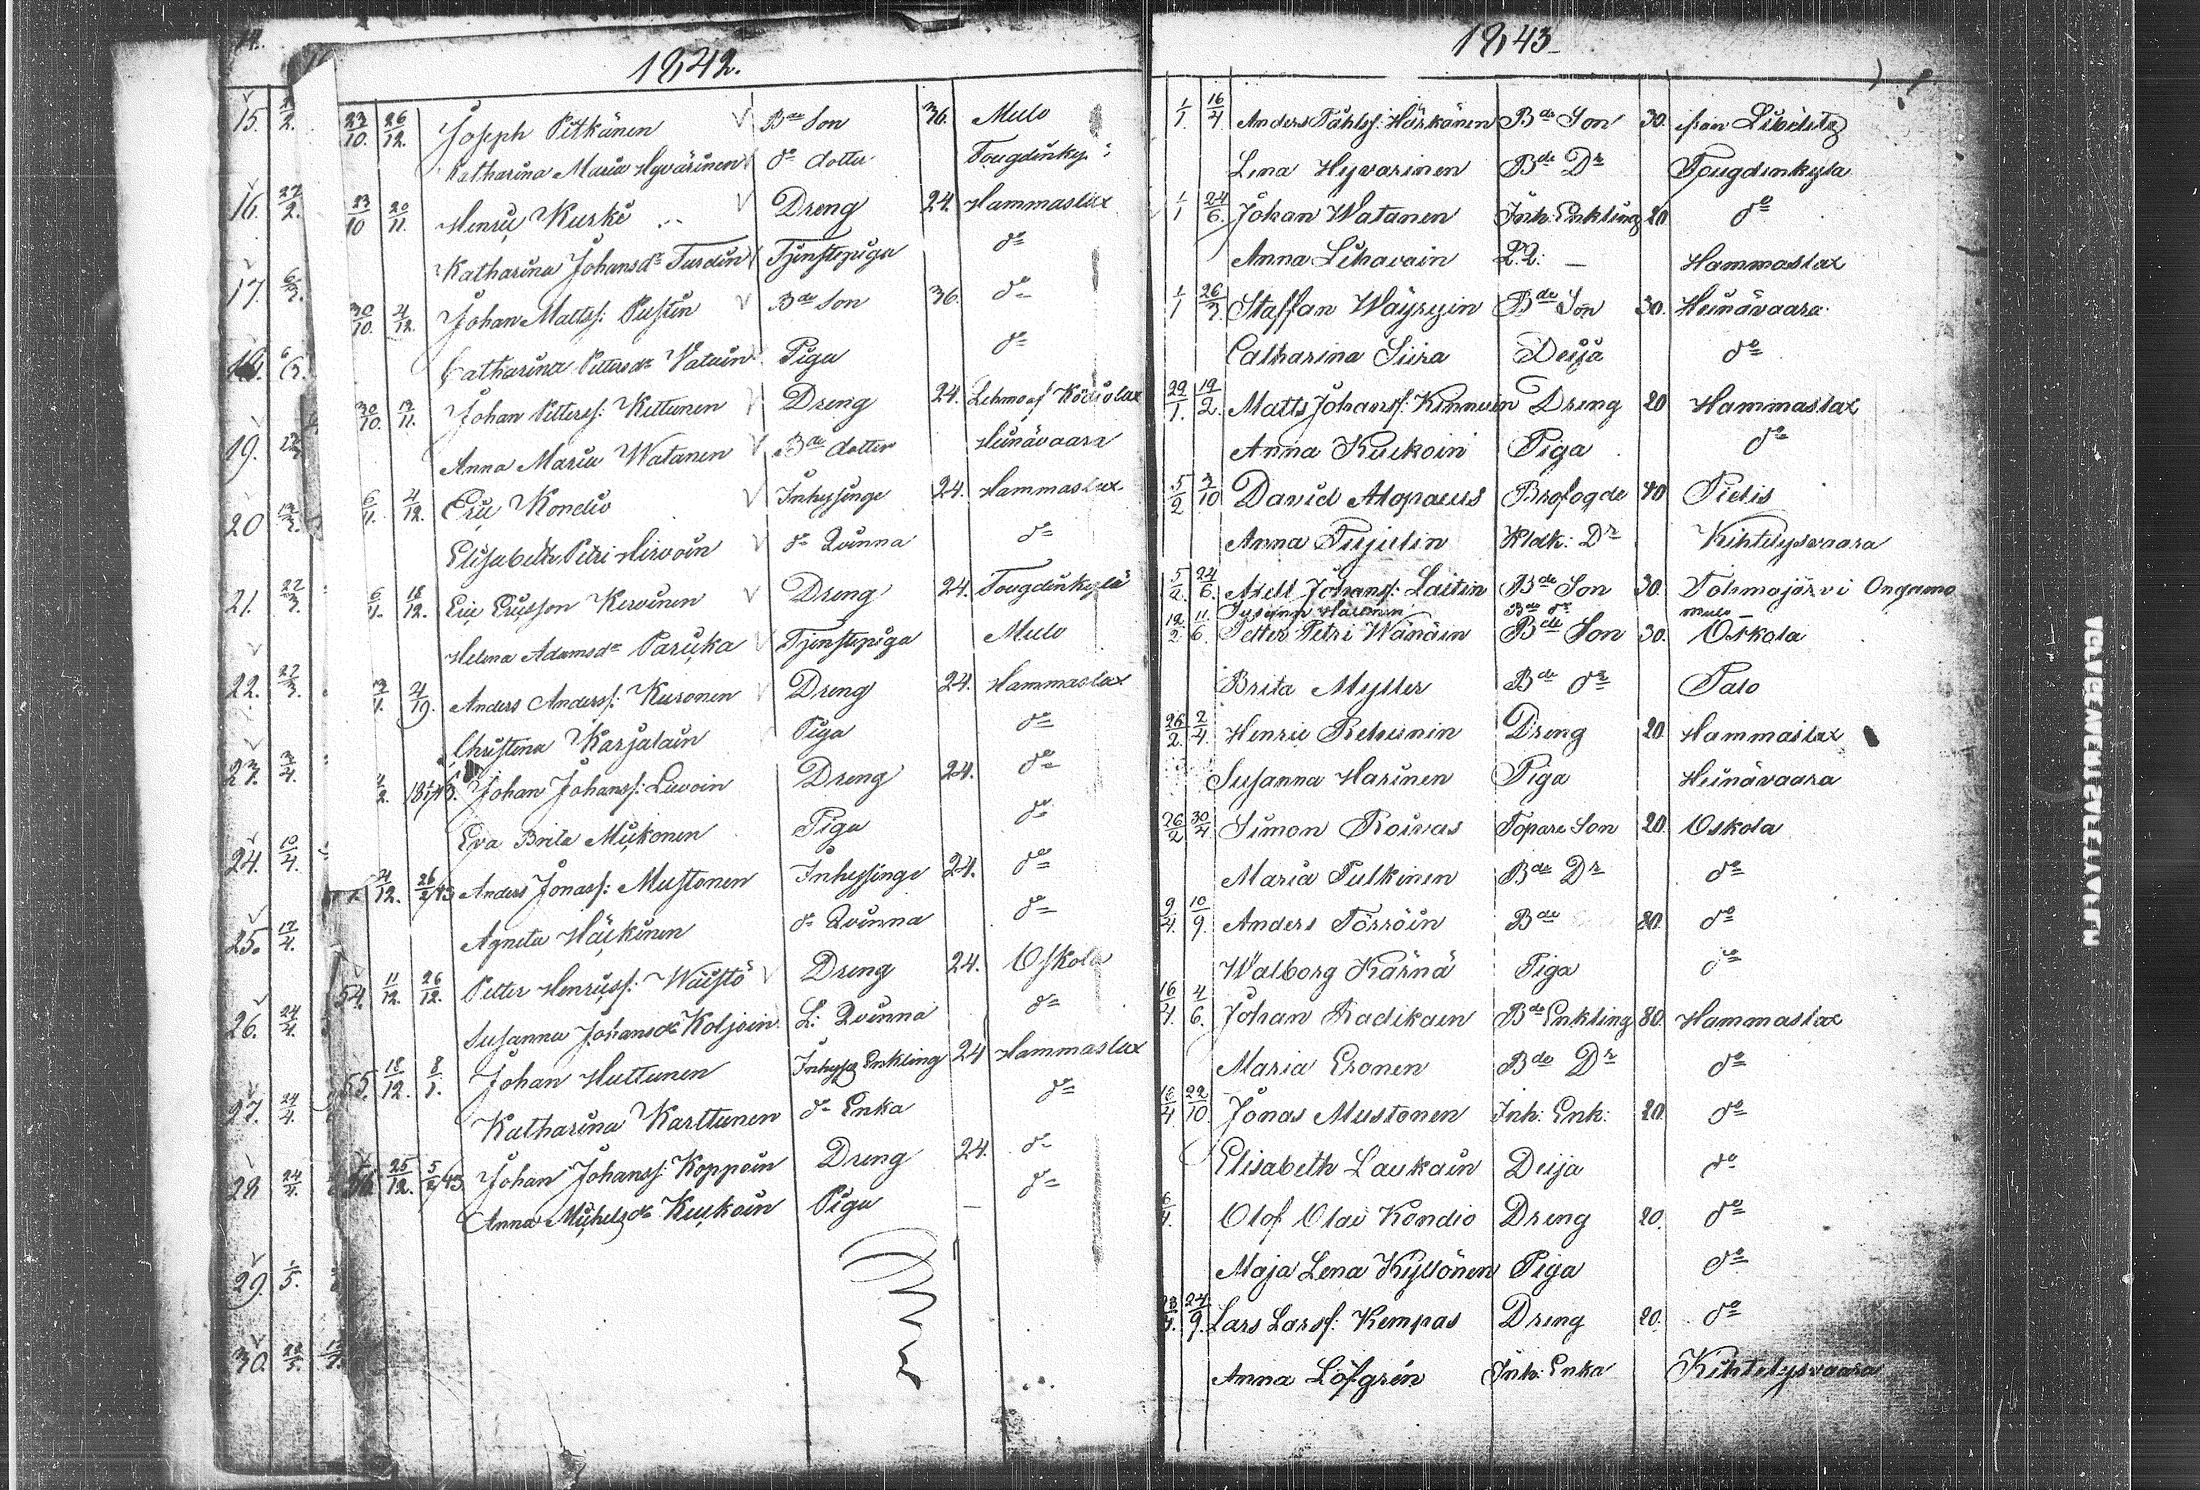 1842.
15. 2.
23/10. 26/12. Joseph Pitkänen Bde Son 36. Mulo
Katharina Maria Hyvärinen do dotter Tougdinky:
16. 27/2.
23/10 20/11. Henric Kurki Dreng 24. Hammaslax
Katharina Johansdr Turdin Tjenstepiga do
17. 6/3.
30/10. 4/12. Johan Mattss: Pustin Bde Son 36. do
18. 6/3.
Catharina Pettersdr Vatain Piga do
30/10. 13/11. Johan Petterss: Kettunen Dreng 24. Lehmo
19.
Anna Maria Watanen Bde dotter Heinävaara
6/11. 4/12. Eric Kondio Inhysinge 24. Hammaslax
20
Elisabeth Petri Hirvoin do Qvinna do
21. 22/3.
6/11. 18/12. Eric Ericsson Kervinen Dreng 24. Tougdinkylä
Helena Adamsdr Paricka Tjenstepiga Mulo
22. 27/3.
Anders Anderss: Kuronen Dreng 24. Hammaslax
Christina Karjalain Piga do
23. 3/4.
Johan Johanss: Livoin Dreng 24. do
Eva Brita Mickonen Piga do
24. 10/4.
4/12. 26/2/43 Anders Jonass: Mustonen Inhysinge 24. do
25. 17/4.
Agneta Häikinen do Qvinna do
54. 11/12. 26/12. Petter Henricss: Wäistö Dreng 24. Oskola
26. 24/4.
Susanna Johansdr Koljoin L: Qvinna do
55. 18/12. 8/1. Johan Huttunen Inhyss Enkling 24 Hammaslax
27. 24/4.
Katharina Karttunen do Enka do
28 24/4.
56 25/12. 5/2/43 Johan Johanss: Koppoin Dreng 24. do
Anna Michelsdr Kuckoin Piga — do
29. 1/5.
30.
1843
1/1. 16/4 Anders Påhlss: Härkönen Bde Son 30. från Libelitz
Lena Hyvarinen Bde Dr Tougdinkyla
1/1 24/6. Johan Watanen Inh: Enkling 20 do
Anna Lihavain L.Q: — Hammaslax
1/1 26/3. Staffan Wäyryin Bde Son 30. Heinävaara
Catharina Siira Deija do
29/1. 19/2. Matts Johanss: Kinnuin Dreng 20 Hammaslax
Anna Kuckoin Piga do
5/2 3/10 David Alopaeus Brofogde 40 Pielis
Anna Tujulin Kldk: Dr Kihtelysvaara
5/2. 24/6. Axell Johanss: Laitin Bde Son 30. Tohmajärvi Ongamo
Bde dr Mulo
12/2 11/6. Petter Petri Wänäin Bde Son 30. Oskola
Brita Myller Bde Dr Palo
26/2. 2/4. Henric Rehunin Dreng 20 Hammaslax
Susanna Harinen Piga Heinävaara
26/2 30/4 Simon Roivas Torpare Son 20. Oskola
Maria Pulkinen Bde Dr do
9/4. 10/9. Anders Törröin Bde 20. do
Walborg Kärnä Piga do
16/4. 4/6. Johan Radikain Bde Enkling 80. Hammaslax
Maria Eronen Bde Dr do
16/4 22/10. Jonas Mustonen Inh: Enk: 20. do
Elisabeth Laukain Deija do
Olof Olai Kondio Dreng 20. do
Maja Lena Kyllönen Piga do
24/9. Lars Larss: Kempas Dreng 20. do
Anna Löfgrén Inh: Enka Kihtelysvaara